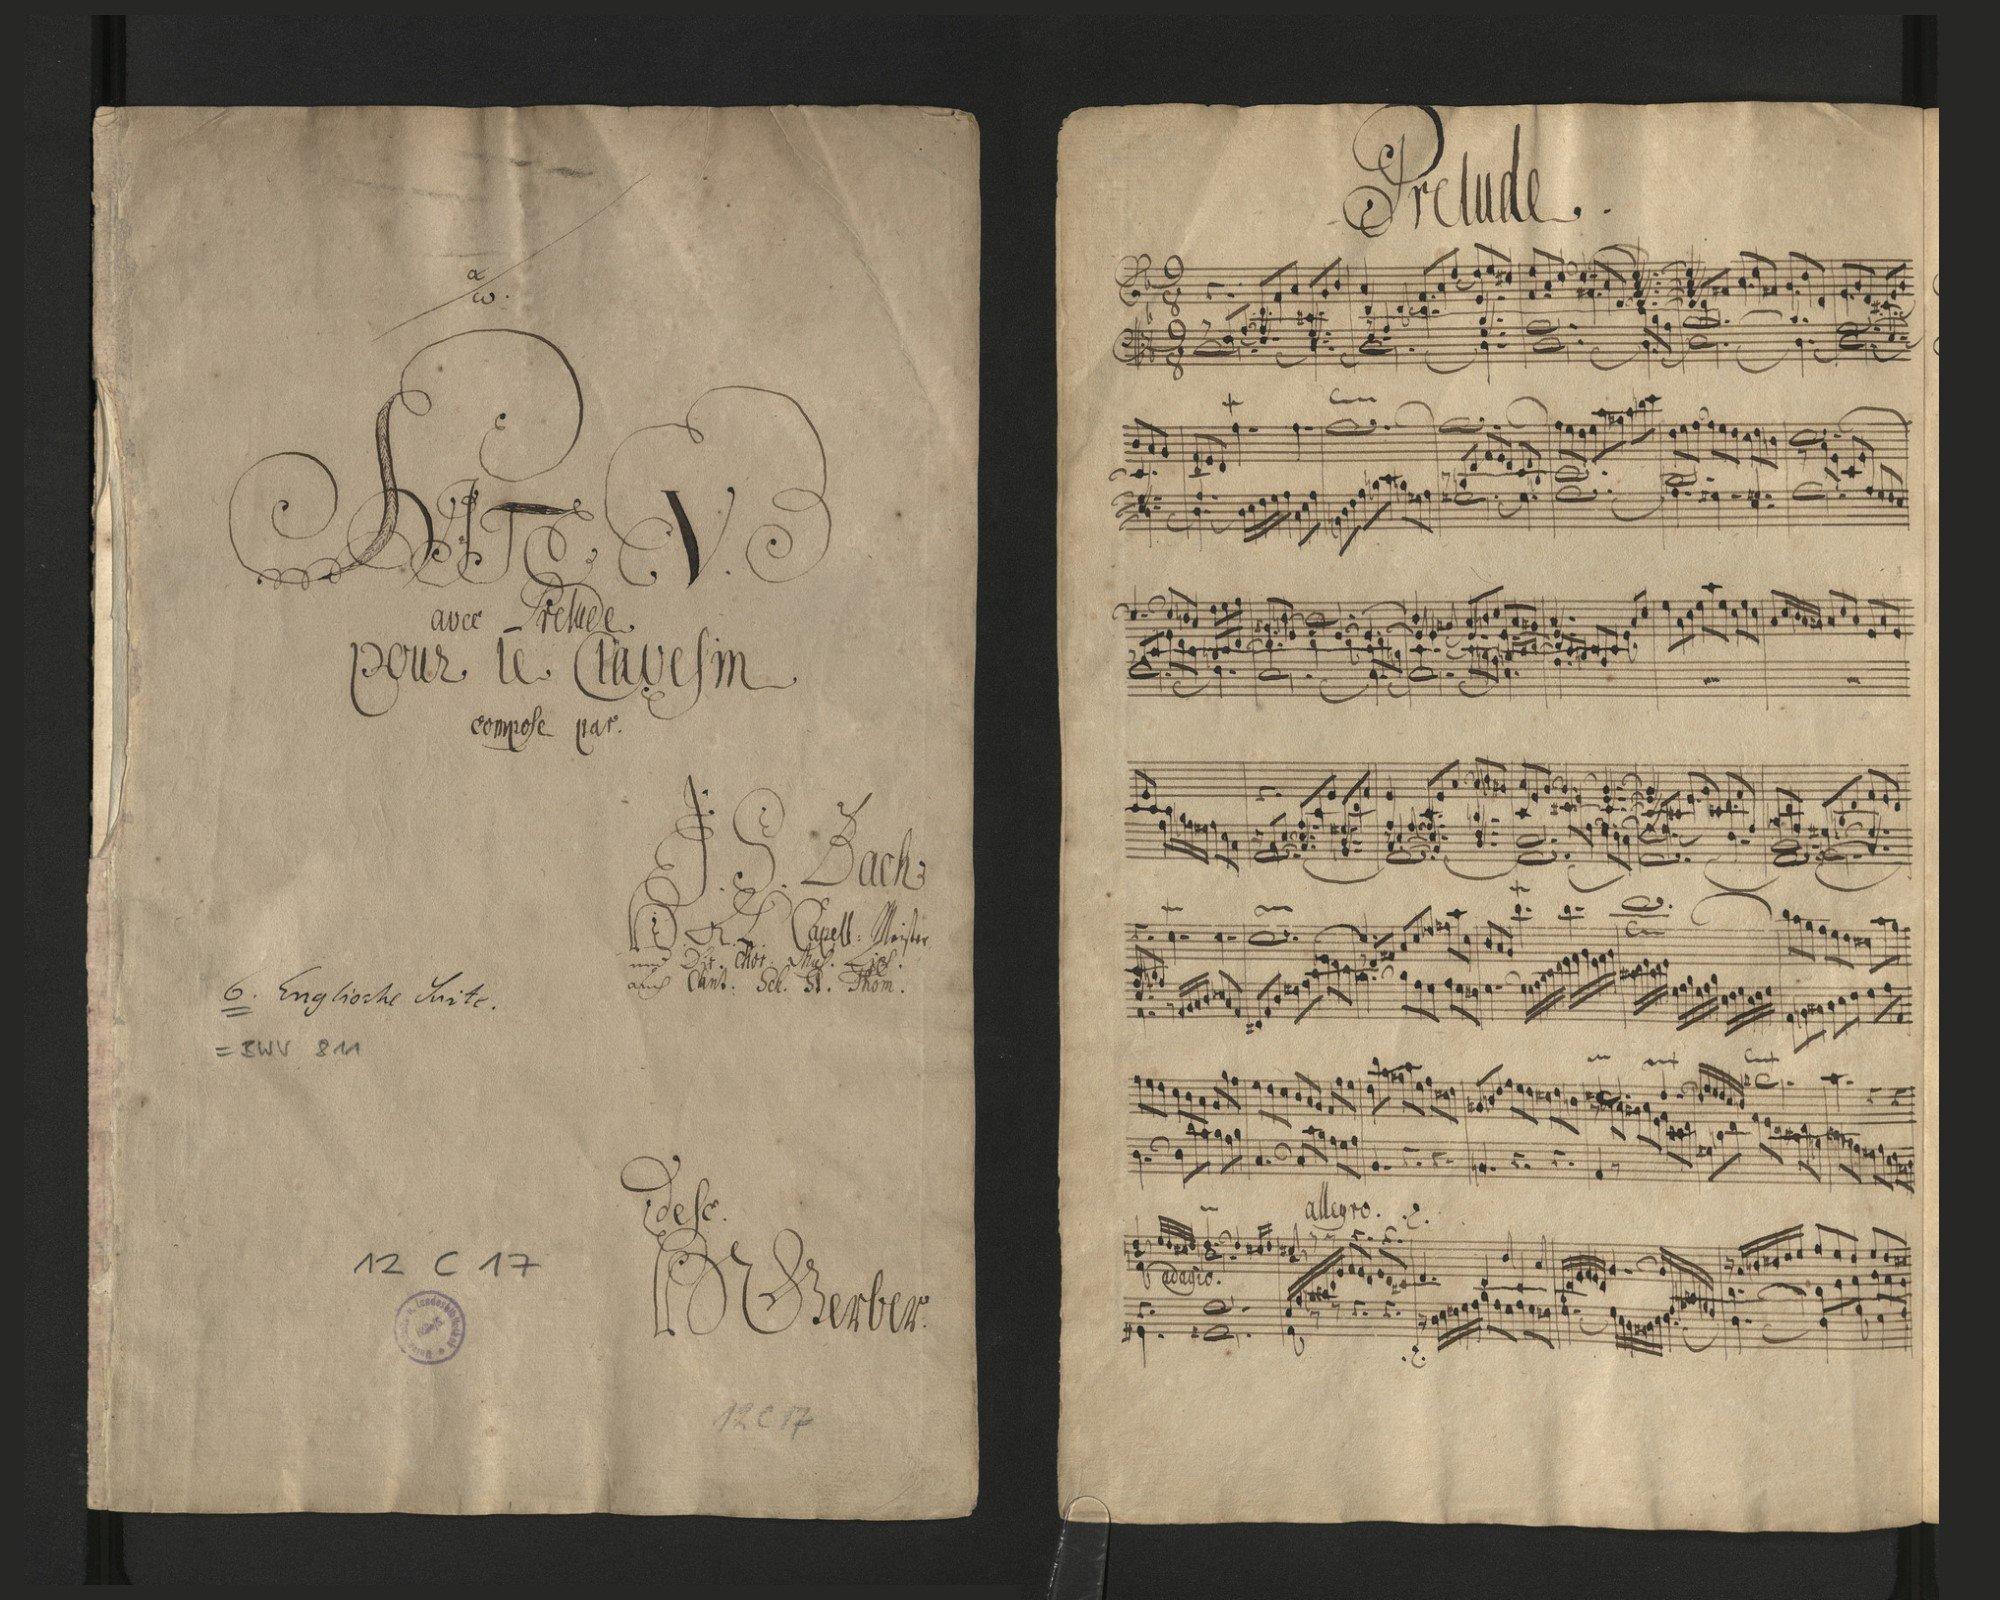 α
ω.
SUITE V.
avec Prelude.
pour le Clavesin
compose par.
J. S. Bach
Capell: Meister
und Dir. Chor. Mus. Lips.
auch Cant. Sch. St. Thom.
6. Englische Suite.
= BWV 811
desc.
HNGerber.
12 C 17
12 C 17
Prelude.
allegro.
adagio.